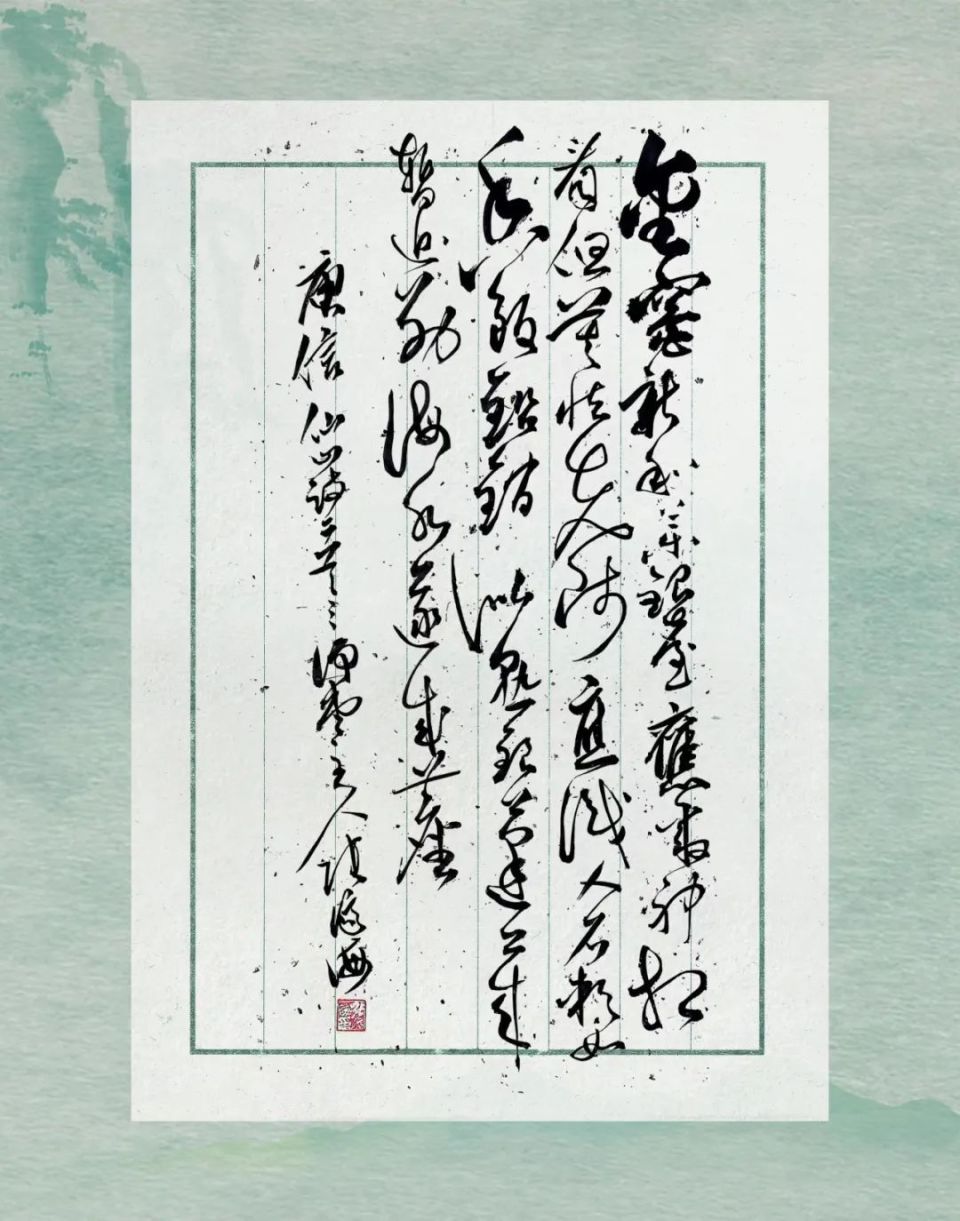 金竈新和藥銀臺舊聚神相
看但莫怯先師應識人石軟如
香飯鉛銷似熟銀蓬萊
暫近別海水遂成塵
庾信仙山詩二首 主人